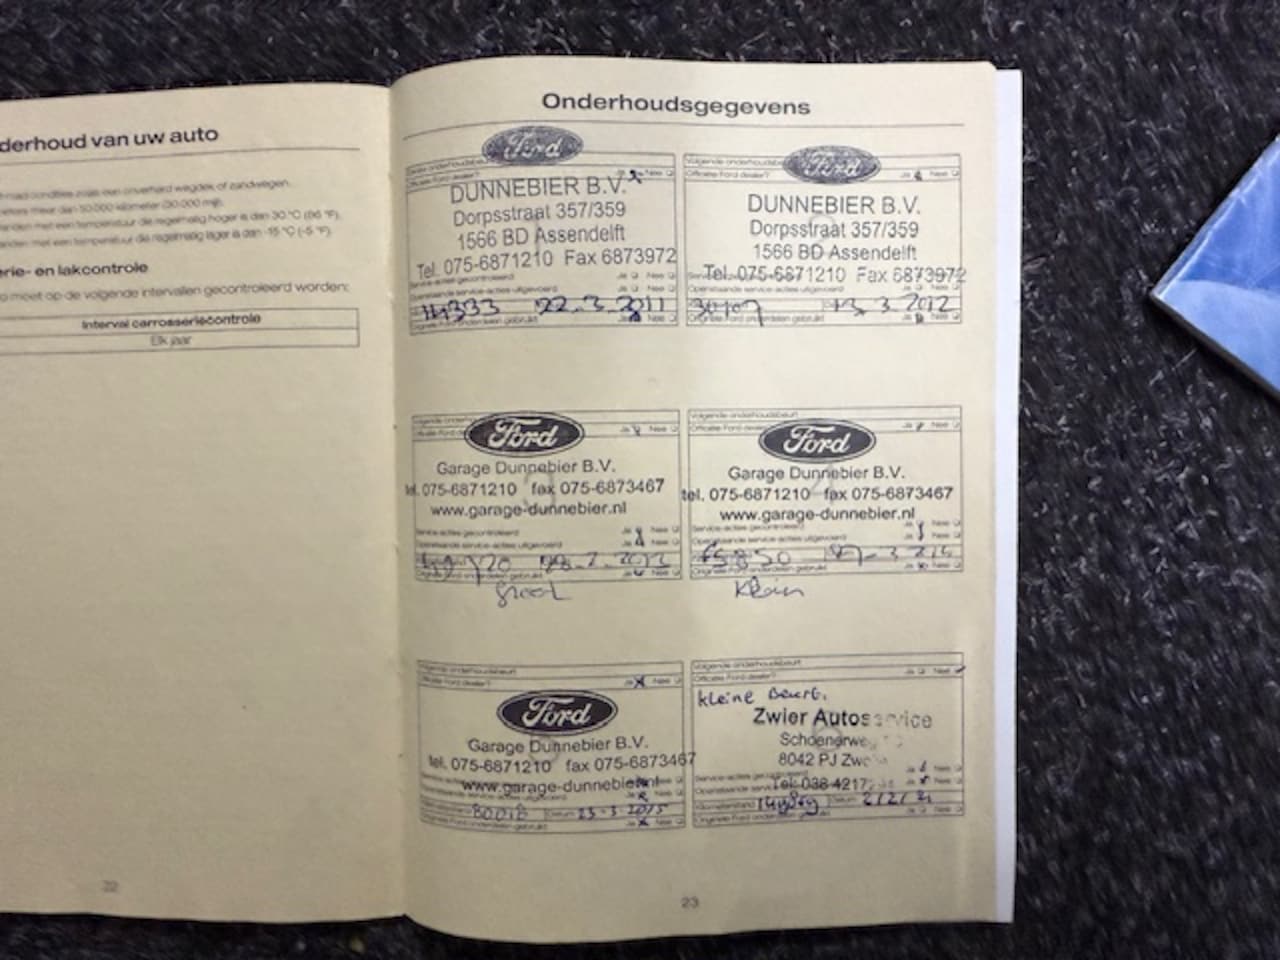 derhoud van uw auto
meer dan 50.000 kilometer (30.000 mijl).
anden met een temperatuur die regelmatig hoger is dan 30 °C (86 °F).
anden met een temperatuur die regelmatig lager is dan -15 °C (-5 °F).
erie- en lakcontrole
o moet op de volgende intervallen gecontroleerd worden:
Interval carrosseriecontrole
Elk jaar
22
Onderhoudsgegevens
Ford
Officiële Ford dealer? Ja Nee
DUNNEBIER B.V.
Dorpsstraat 357/359
1566 BD Assendelft
Tel. 075-6871210 Fax 6873972
Service-acties gecontroleerd Ja Nee
Openstaande service-acties uitgevoerd
22-3-2011
Originele Ford onderdelen gebruikt Ja Nee
Volgende onderhoudsbeurt
Ford
Officiële Ford dealer? Ja Nee
DUNNEBIER B.V.
Dorpsstraat 357/359
1566 BD Assendelft
Tel. 075-6871210 Fax 6873972
Openstaande service-acties uitgevoerd Ja Nee
13-3-2012
Originele Ford onderdelen gebruikt Ja Nee
Ford
Ja Nee
Garage Dunnebier B.V.
tel. 075-6871210 fax 075-6873467
www.garage-dunnebier.nl
Service-acties gecontroleerd Ja Nee
Openstaande service-acties uitgevoerd Ja Nee
Originele Ford onderdelen gebruikt Ja Nee
groot
Volgende onderhoudsbeurt
Officiële Ford dealer? Ja Nee
Ford
Garage Dunnebier B.V.
tel. 075-6871210 fax 075-6873467
www.garage-dunnebier.nl
Service-acties gecontroleerd Ja Nee
Openstaande service-acties uitgevoerd Ja Nee
65850
Originele Ford onderdelen gebruikt Ja Nee
Klein
Volgende onderhoudsbeurt
Officiële Ford dealer? Ja Nee
Ford
Garage Dunnebier B.V.
tel. 075-6871210 fax 075-6873467
www.garage-dunnebier.nl
service-acties uitgevoerd
80018 Datum 23-3-2015
Originele Ford onderdelen gebruikt Ja Nee
Volgende onderhoudsbeurt
Officiële Ford dealer? Ja Nee
kleine Beurt.
Zwier Autoservice
Schoenerwe
8042 PJ Zwo
Service-acties gecontroleerd Ja Nee
Tel: 038-4217
Kilometerstand Datum 2/2/21
Originele Ford onderdelen gebruikt Ja Nee
23